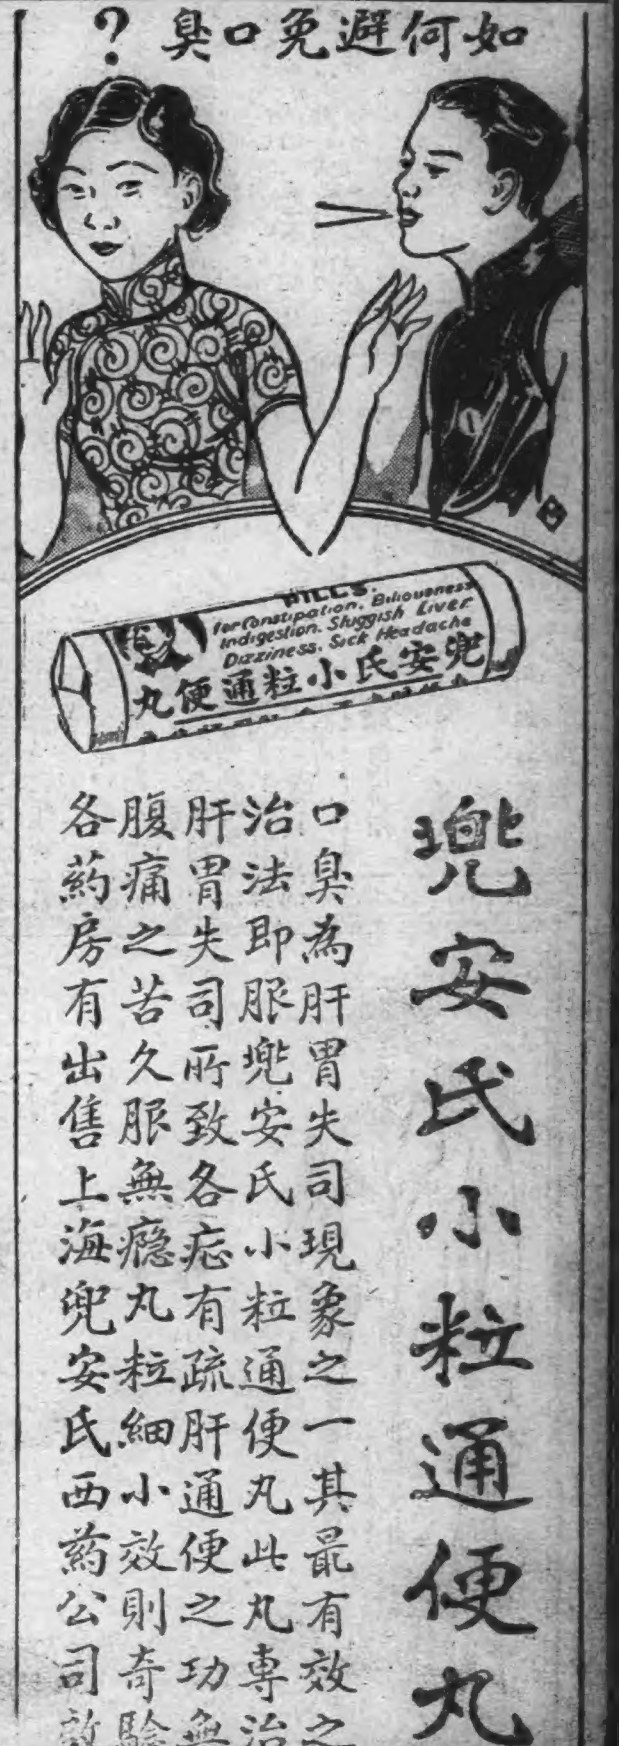 如何避免口臭?
PILLS.
for Constipation, Biliousness
Indigestion, Sluggish Liver
Dizziness, Sick Headache
兜安氏小粒通便丸
兜安氏小粒通便丸
口臭為肝胃失司現象之一其最有效之
治法即服兜安氏小粒通便丸此丸專治
肝胃失司所致各症有疏肝通便之功無
腹痛之苦久服無癮丸粒細小效則奇驗
各葯房有出售上海兜安氏西葯公司啟